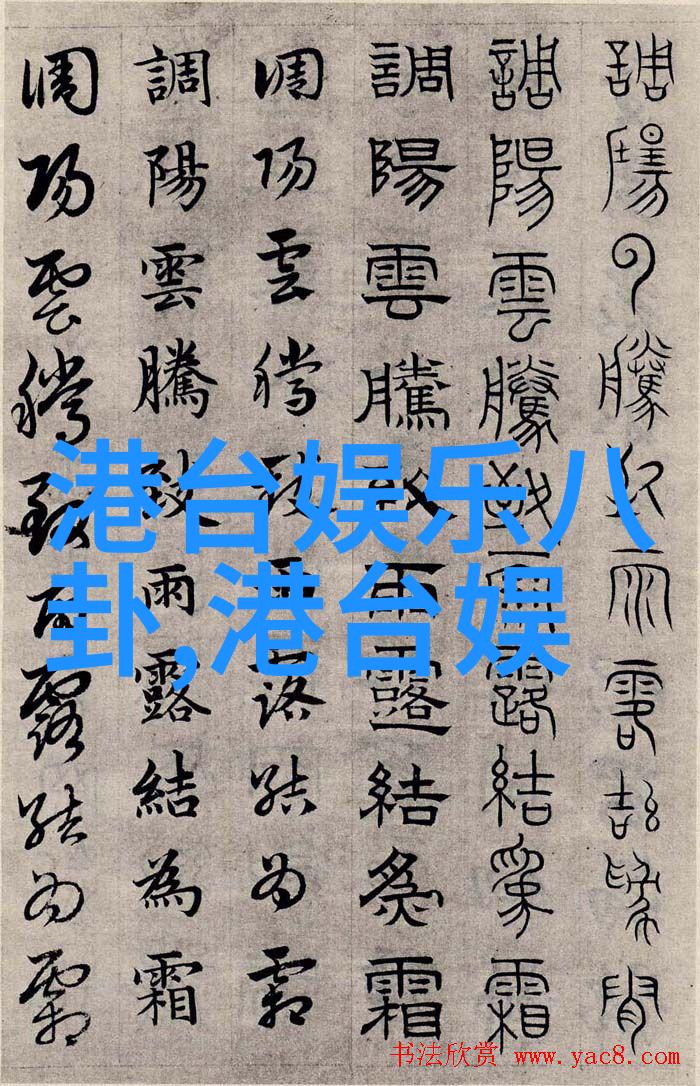 調陽雲騰致雨露結為霜
調陽雲騰致雨露結為霜
調陽雲騰致雨露結為霜
調陽雲騰致雨露結為霜
調陽雲騰致雨露結為霜
調陽雲騰致雨露結為霜
港台娱乐八
卦,港台娱
书法欣赏 www.yac8.com